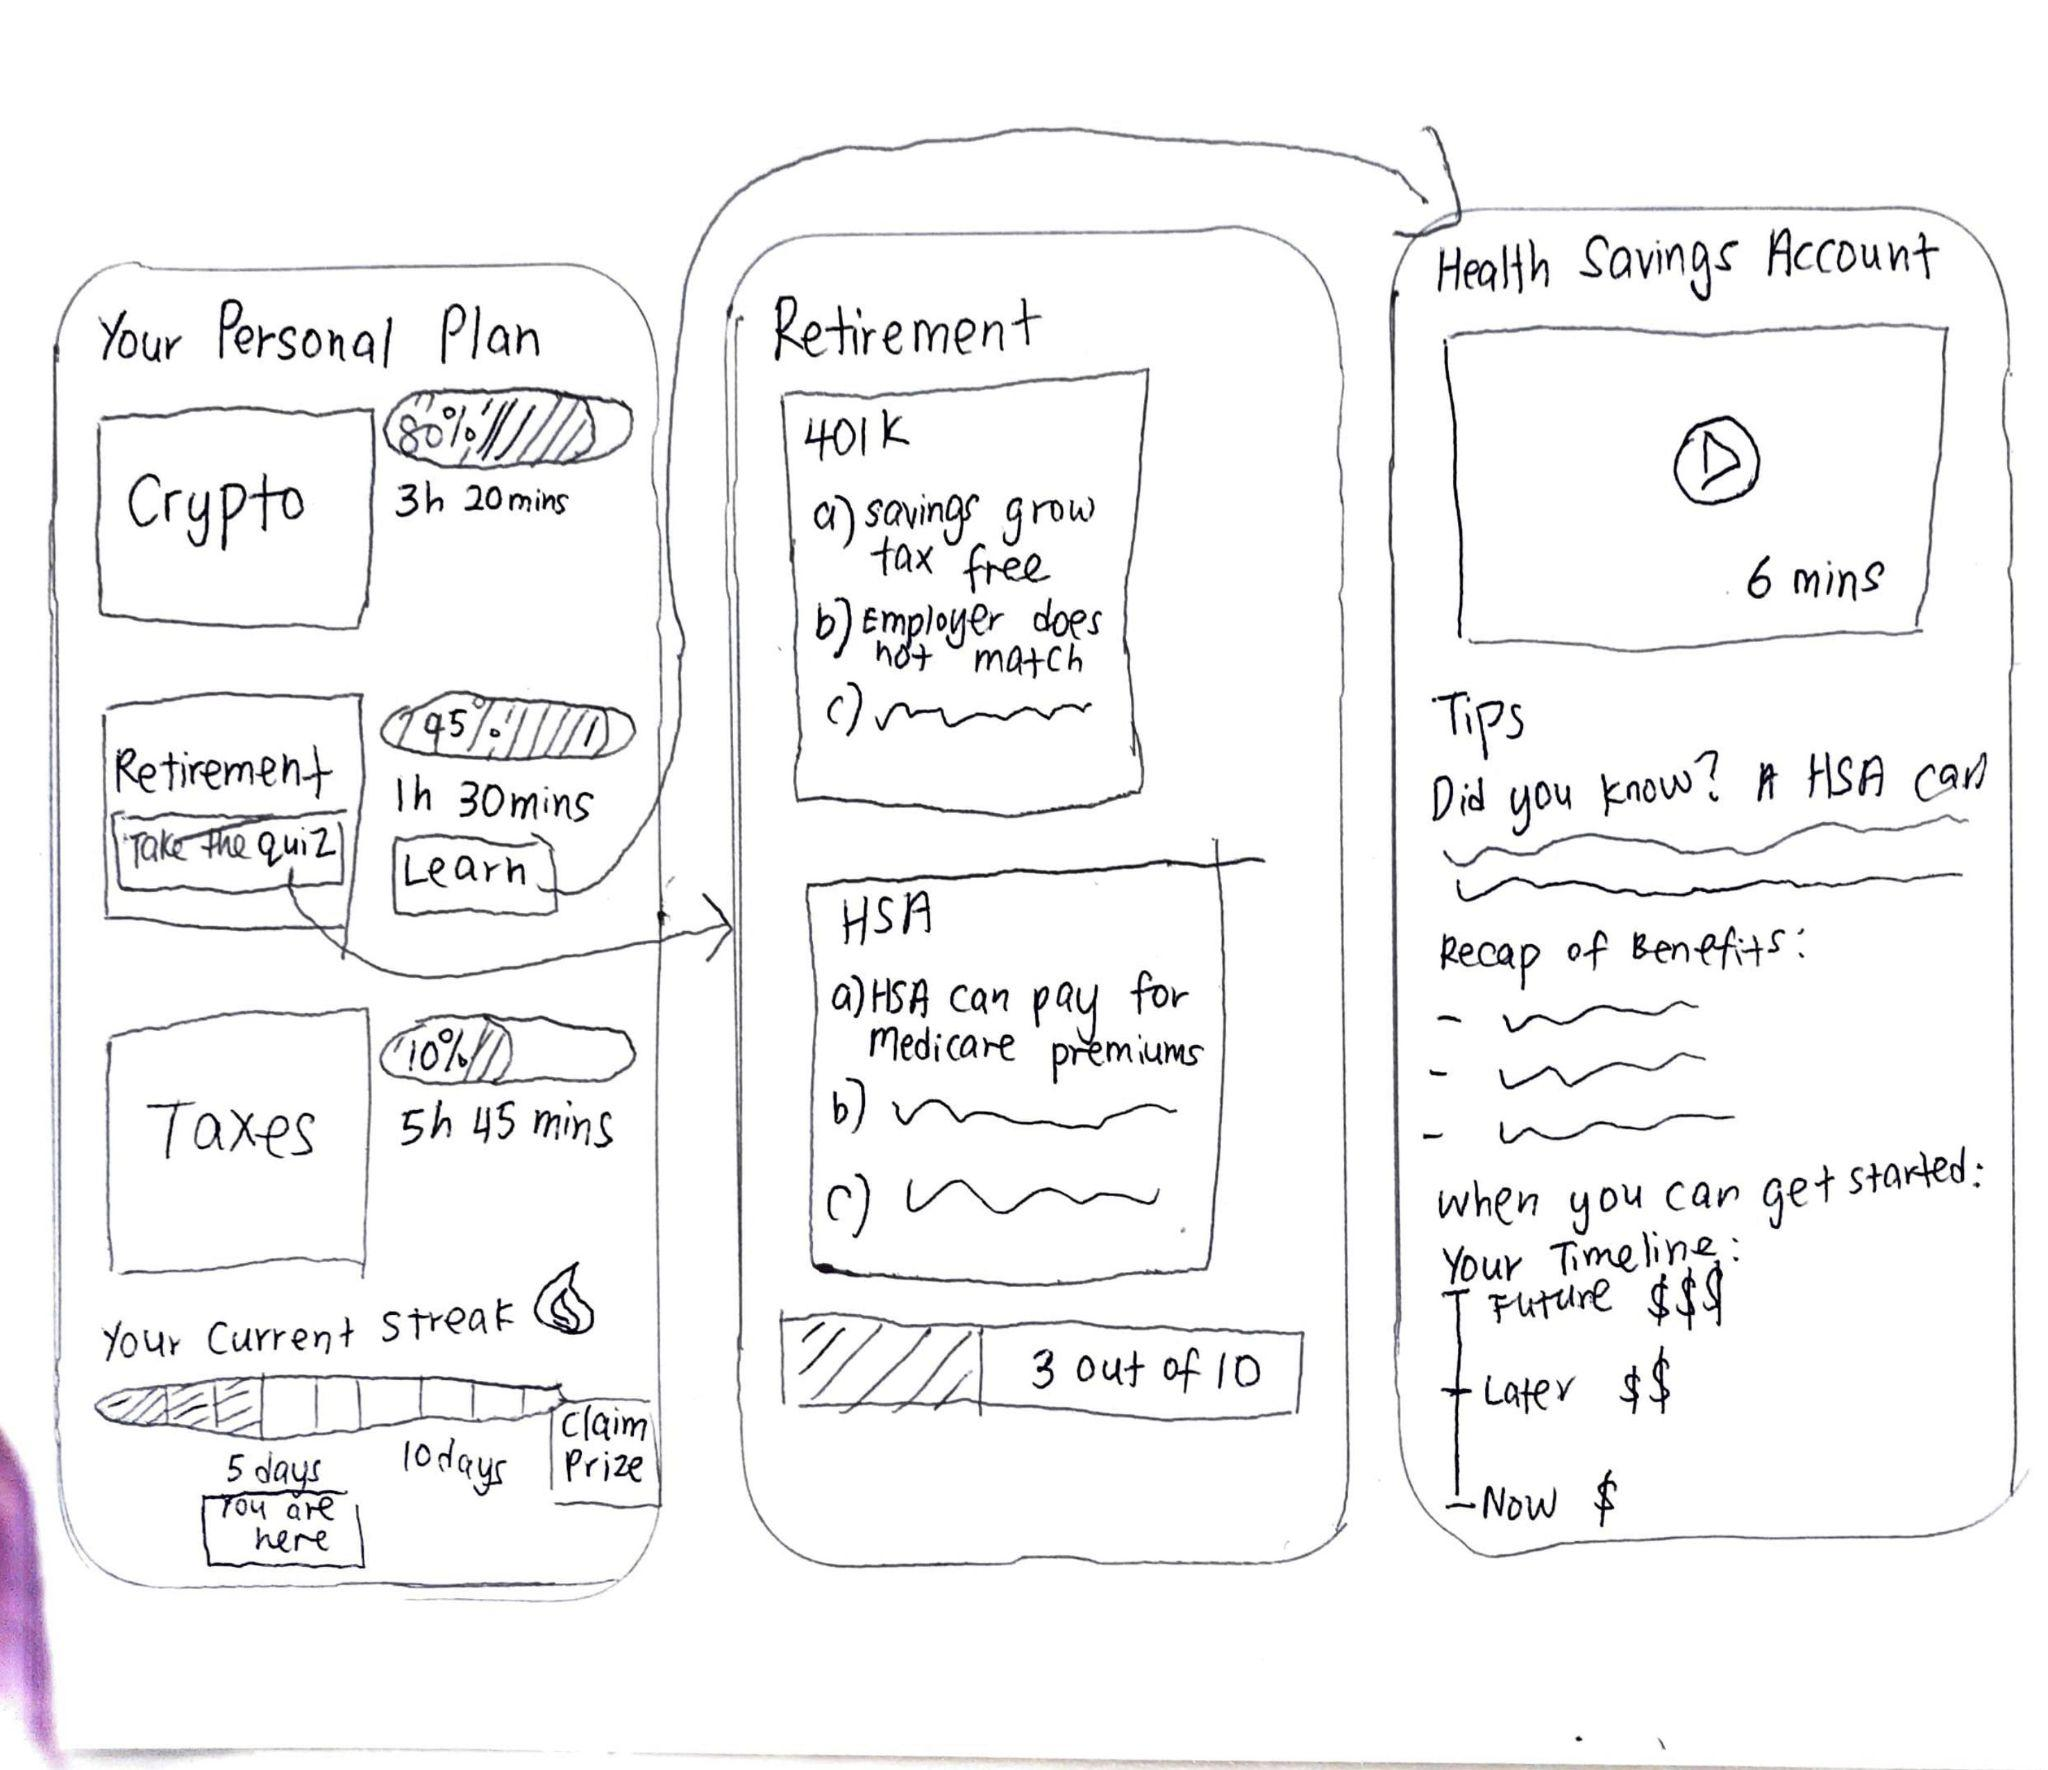 Your Personal Plan
Crypto
80%
3h 20mins
Retirement
Take the quiz
95%
1h 30mins
Learn
Taxes
10%
5h 45 mins
Your Current streak
5 days
10 days
Claim
Prize
You are
here
Retirement
401K
a) savings grow
tax free
b) Employer does
not match
c)
HSA
a) HSA can pay for
Medicare premiums
b)
c)
3 out of 10
Health Savings Account
6 mins
Tips
Did you know? A HSA can
Recap of Benefits:
-
-
-
When you can get started:
Your Timeline:
Future $$$
Later $$
Now $